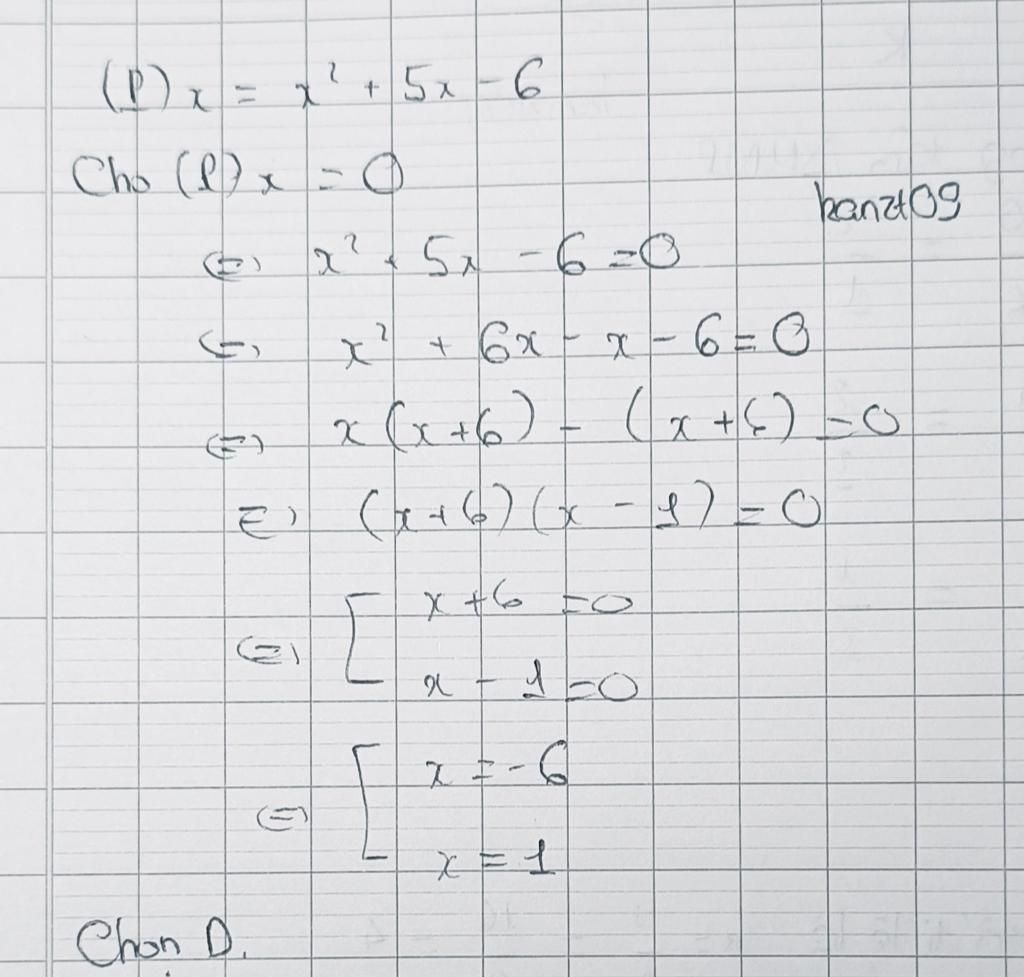 (P)x = x² + 5x - 6
Cho (P)x = 0
kanzt09
⇔ x² + 5x - 6 = 0
⇔ x² + 6x - x - 6 = 0
⇔ x(x+6) - (x+6) = 0
⇔ (x+6)(x - 1) = 0
⇔ [ x + 6 = 0
x - 1 = 0
⇔ [ x = -6
x = 1
Chọn D.